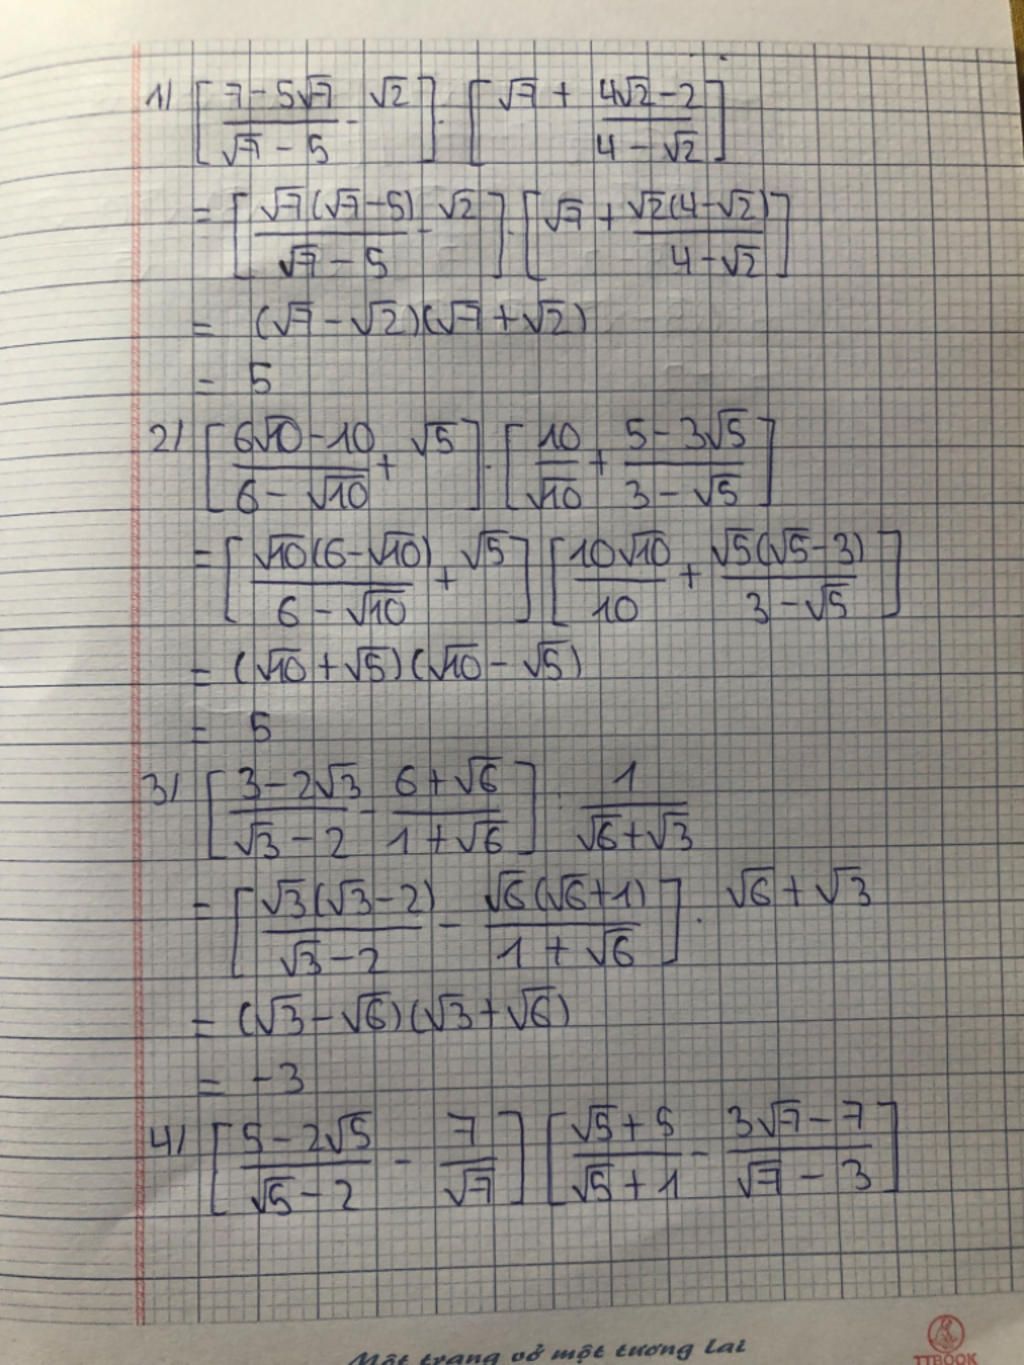 1) [(7-5√7)/(√7-5) - √2] . [√7 + (4√2-2)/(4-√2)]
= [√7(√7-5)/(√7-5) - √2] . [√7 + √2(4-√2)/(4-√2)]
= (√7-√2)(√7+√2)
= 5
2) [(6√10-10)/(6-√10) + √5] . [10/√10 + (5-3√5)/(3-√5)]
= [√10(6-√10)/(6-√10) + √5] [10√10/10 + √5(√5-3)/(3-√5)]
= (√10+√5)(√10-√5)
= 5
3) [(3-2√3)/(√3-2) - (6+√6)/(1+√6)] : 1/(√6+√3)
= [√3(√3-2)/(√3-2) - √6(√6+1)/(1+√6)] . √6+√3
= (√3-√6)(√3+√6)
= -3
4) [(5-2√5)/(√5-2) - 7/√7] [(√5+5)/(√5+1) - (3√7-7)/(√7-3)]
Một trang vở một tương lai
TTBOOK